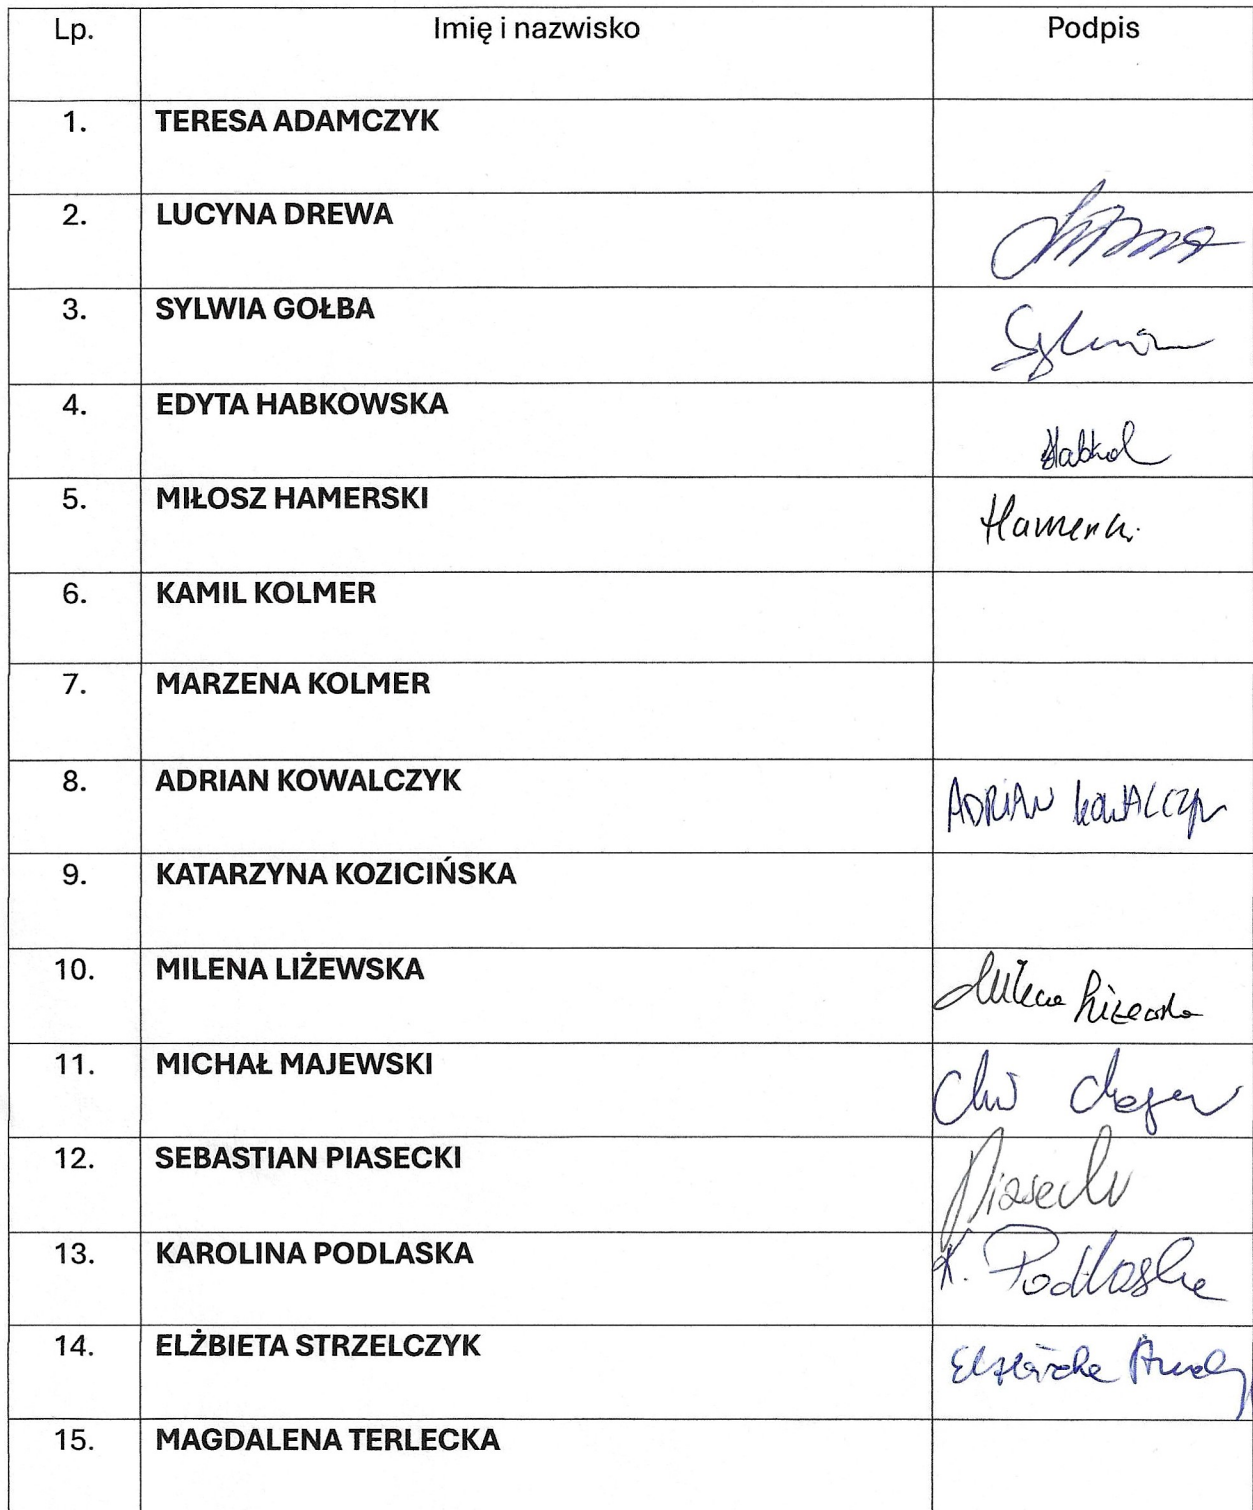 Lp. Imię i nazwisko Podpis
1. TERESA ADAMCZYK
2. LUCYNA DREWA
3. SYLWIA GOŁBA Sylwia
4. EDYTA HABKOWSKA
5. MIŁOSZ HAMERSKI
6. KAMIL KOLMER
7. MARZENA KOLMER
8. ADRIAN KOWALCZYK ADRIAN KOWALCZYK
9. KATARZYNA KOZICIŃSKA
10. MILENA LIŻEWSKA Milena Liżewska
11. MICHAŁ MAJEWSKI
12. SEBASTIAN PIASECKI Piasecki
13. KAROLINA PODLASKA K. Podlaska
14. ELŻBIETA STRZELCZYK Elżbieta
15. MAGDALENA TERLECKA